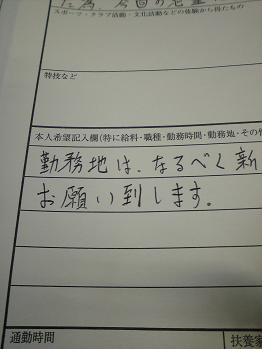 た為、今回の志望
スポーツ・クラブ活動・文化活動などの体験から得たもの
特技など
本人希望記入欄(特に給料・職種・勤務時間・勤務地・その他
勤務地は、なるべく新
お願い到します。
通勤時間
扶養家